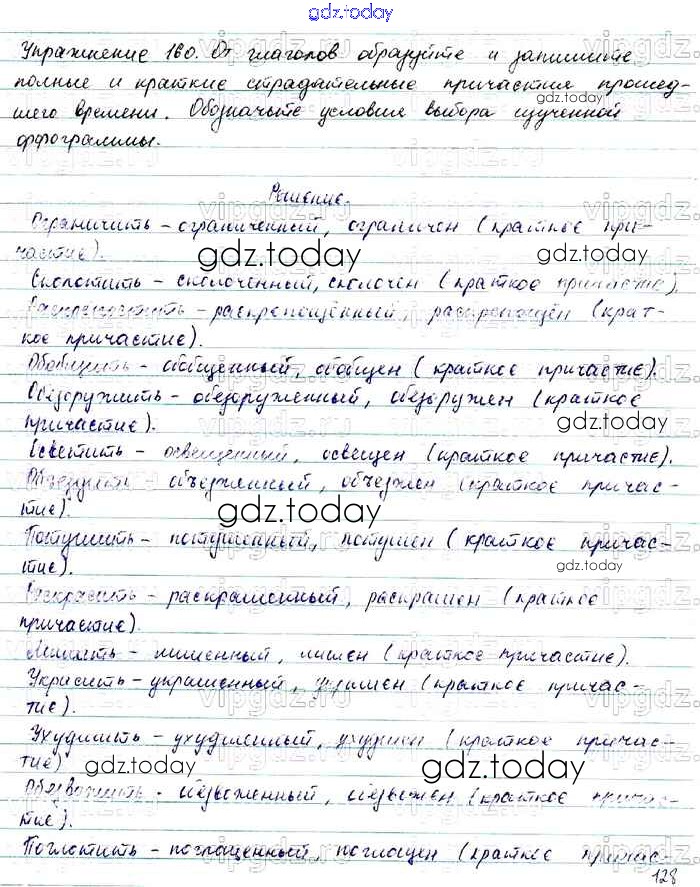 gdz.today
Упражнение 160. От глаголов образуйте и запишите
полные и краткие страдательные причастия прошед-
шего времени. Обозначьте условия выбора изученной
орфограммы.
Решение.
Ограничить – ограниченный, ограничен (краткое при-
частие).
Сколотить – сколоченный, сколочен (краткое причастие).
Раскрепостить – раскрепощённый, раскрепощён (крат-
кое причастие).
Обобщить – обобщенный, обобщен (краткое причастие).
Обезоружить – обезоруженный, обезоружен (краткое
причастие).
Осветить – освещенный, освещен (краткое причастие).
(краткое причас-
тие).
Потушить – потушенный, потушен (краткое причас-
тие).
Раскрасить – раскрашенный, раскрашен (краткое
причастие).
Лишить – лишенный, лишен (краткое причастие).
Украсить – украшенный, украшен (краткое причас-
тие).
Ухудшить – ухудшенный, ухудшен (краткое причас-
тие)
(краткое причас-
тие).
Поглотить – поглощенный, поглощен (краткое причас-
128